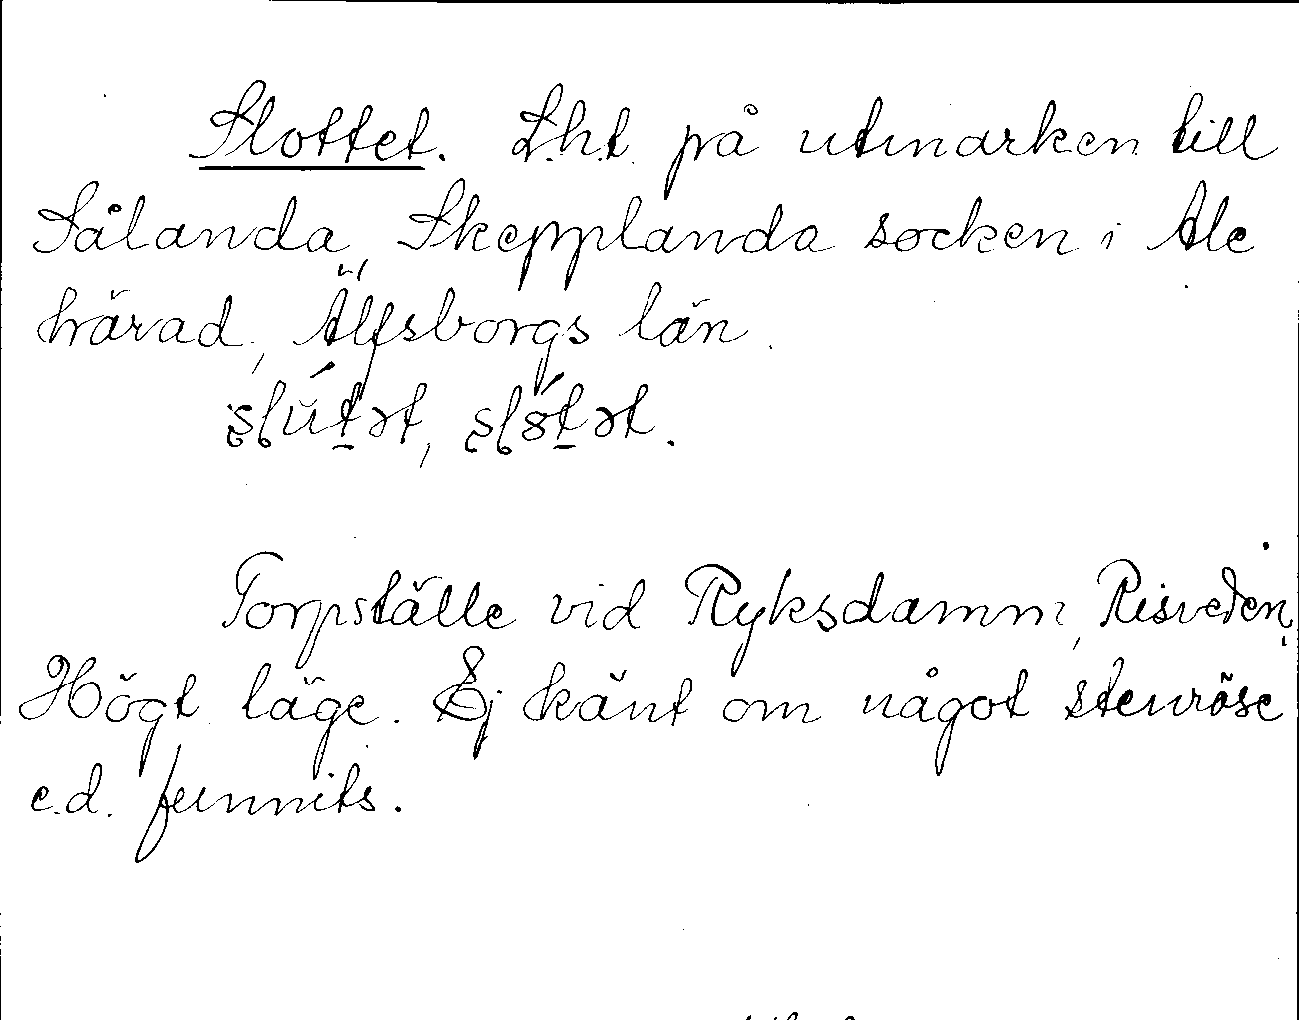 Slottet. L.h.t. på utmarken till
Sålanda, Skepplanda socken i Ale
härad, Älfsborgs län.
Torpställe vid Ryksdamm, Risveden,
Högt läge. Ej känt om något stenröse
e.d. funnits.